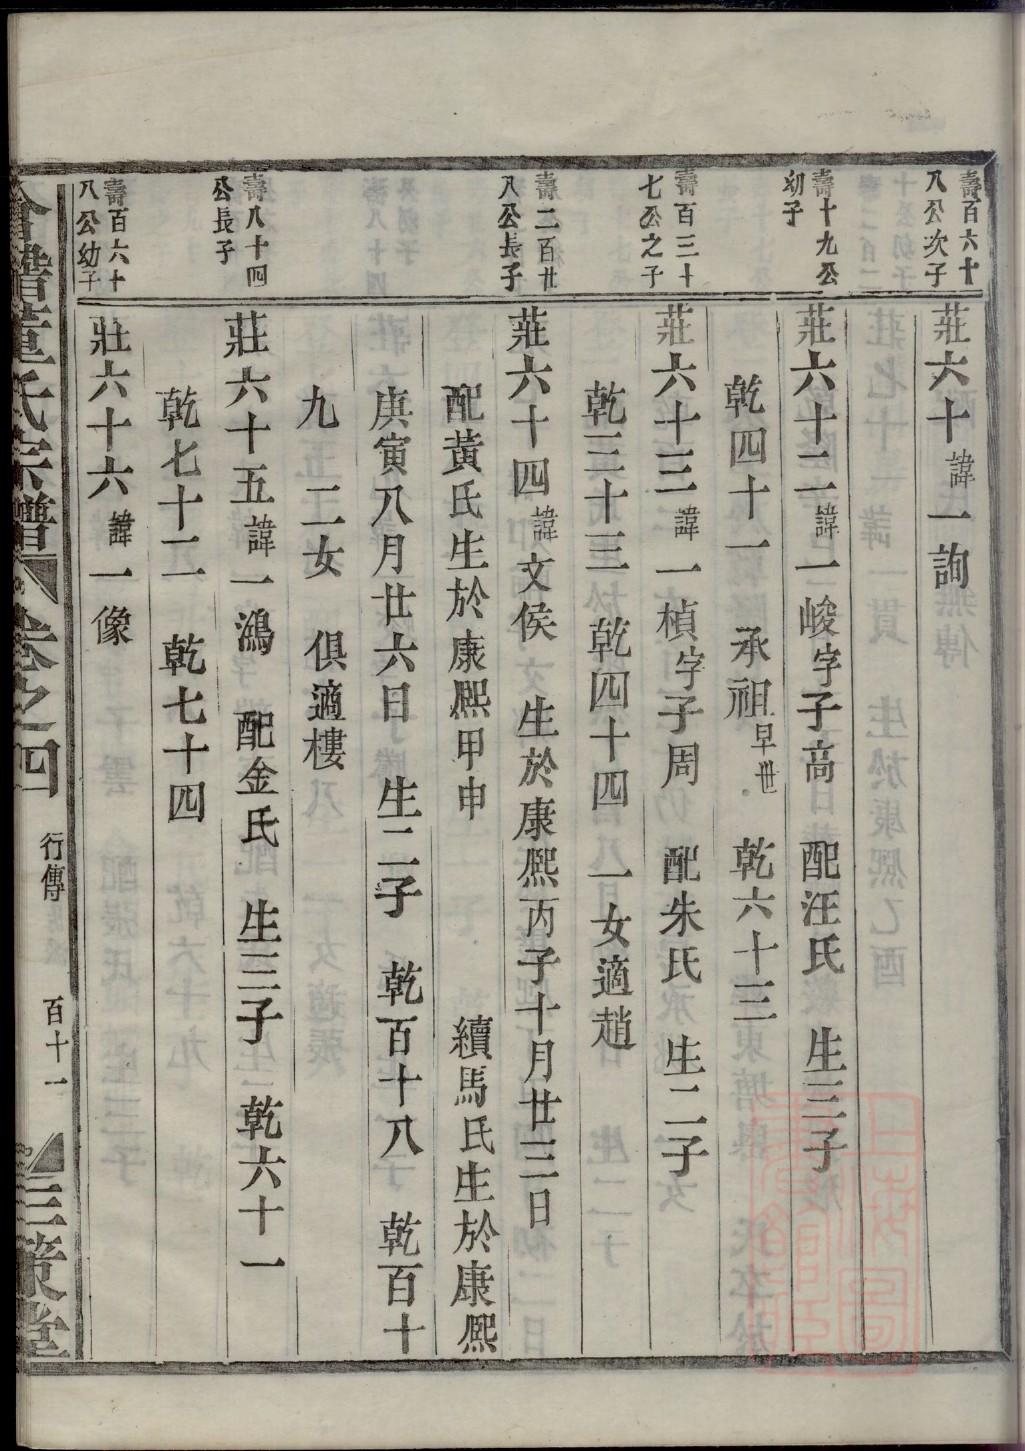 壽百六十
八公次子
莊六十諱一詢
壽十九公
幼子
莊六十二諱一峻字子高　配汪氏　生三子
乾四十一　承祖早世　乾六十三
壽百三十
七公之子
莊六十三諱一楨字子周　配朱氏　生二子
乾三十三　乾四十四　一女適趙
壽二百廿
八公長子
莊六十四諱文侯　生於康熙丙子十月廿三日
配黃氏生於康熙甲申　續馬氏生於康熙
庚寅八月廿六日　生二子　乾百十八　乾百十
九　二女　俱適樓
壽八十四
公長子
莊六十五諱一鴻　配金氏　生三子　乾六十一
乾七十二　乾七十四
壽百六十
八公幼子
莊六十六諱一像
會稽董氏宗譜　卷之四　行傳　百十一　三策堂